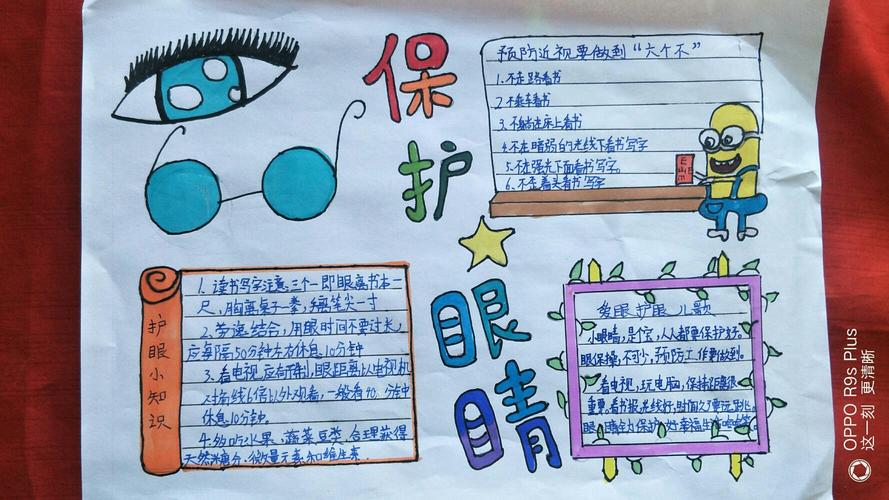 保护
眼睛
预防近视要做到“六个不”
1.不走路看书
2.不乘车看书
3.不躺在床上看书
4.不在暗弱的光线下看书写字
5.不在强光下面看书写字。
6.不歪着头看书写字
护眼小知识
1.读书写字注意三个一即眼离书本一
尺，胸离桌子一拳，手离笔尖一寸
2.劳逸结合，用眼时间不要过长，
应每隔50分钟左右休息10分钟
3.看电视应有节制，眼距离以电视机
对角线6倍以外观看，一般看40分钟
休息10分钟。
4.多吃水果、蔬菜豆类，合理获得
天然糖分、微量元素和维生素
爱眼护眼儿歌
小眼睛，是个宝，人人都要保护好。
眼保操，不可少，预防工作要做到。
看电视，玩电脑，保持距离很
重要，看书报，光线好，时间久了要远眺。
眼睛保护好幸福生活
OPPO R9s Plus
这一刻 更清晰